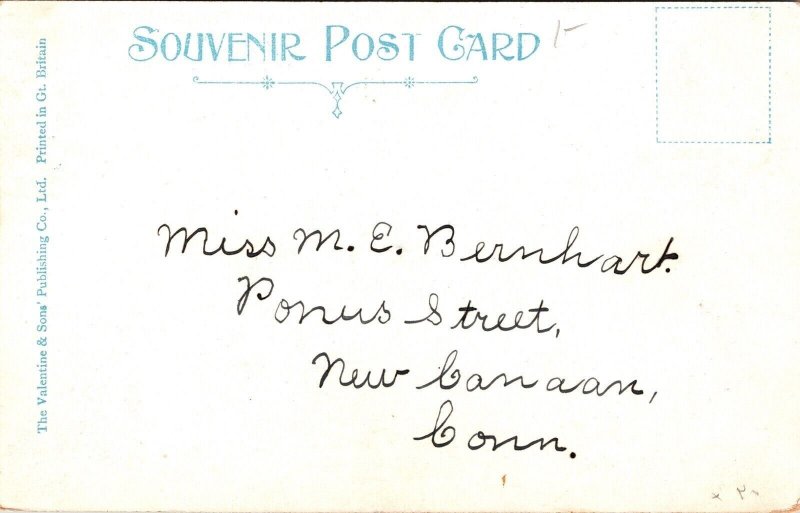 SOUVENIR POST CARD
The Valentine & Sons' Publishing Co., Ltd. Printed in Gt. Britain
Miss M. E. Bernhart.
Ponus Street,
New Canaan,
Conn.